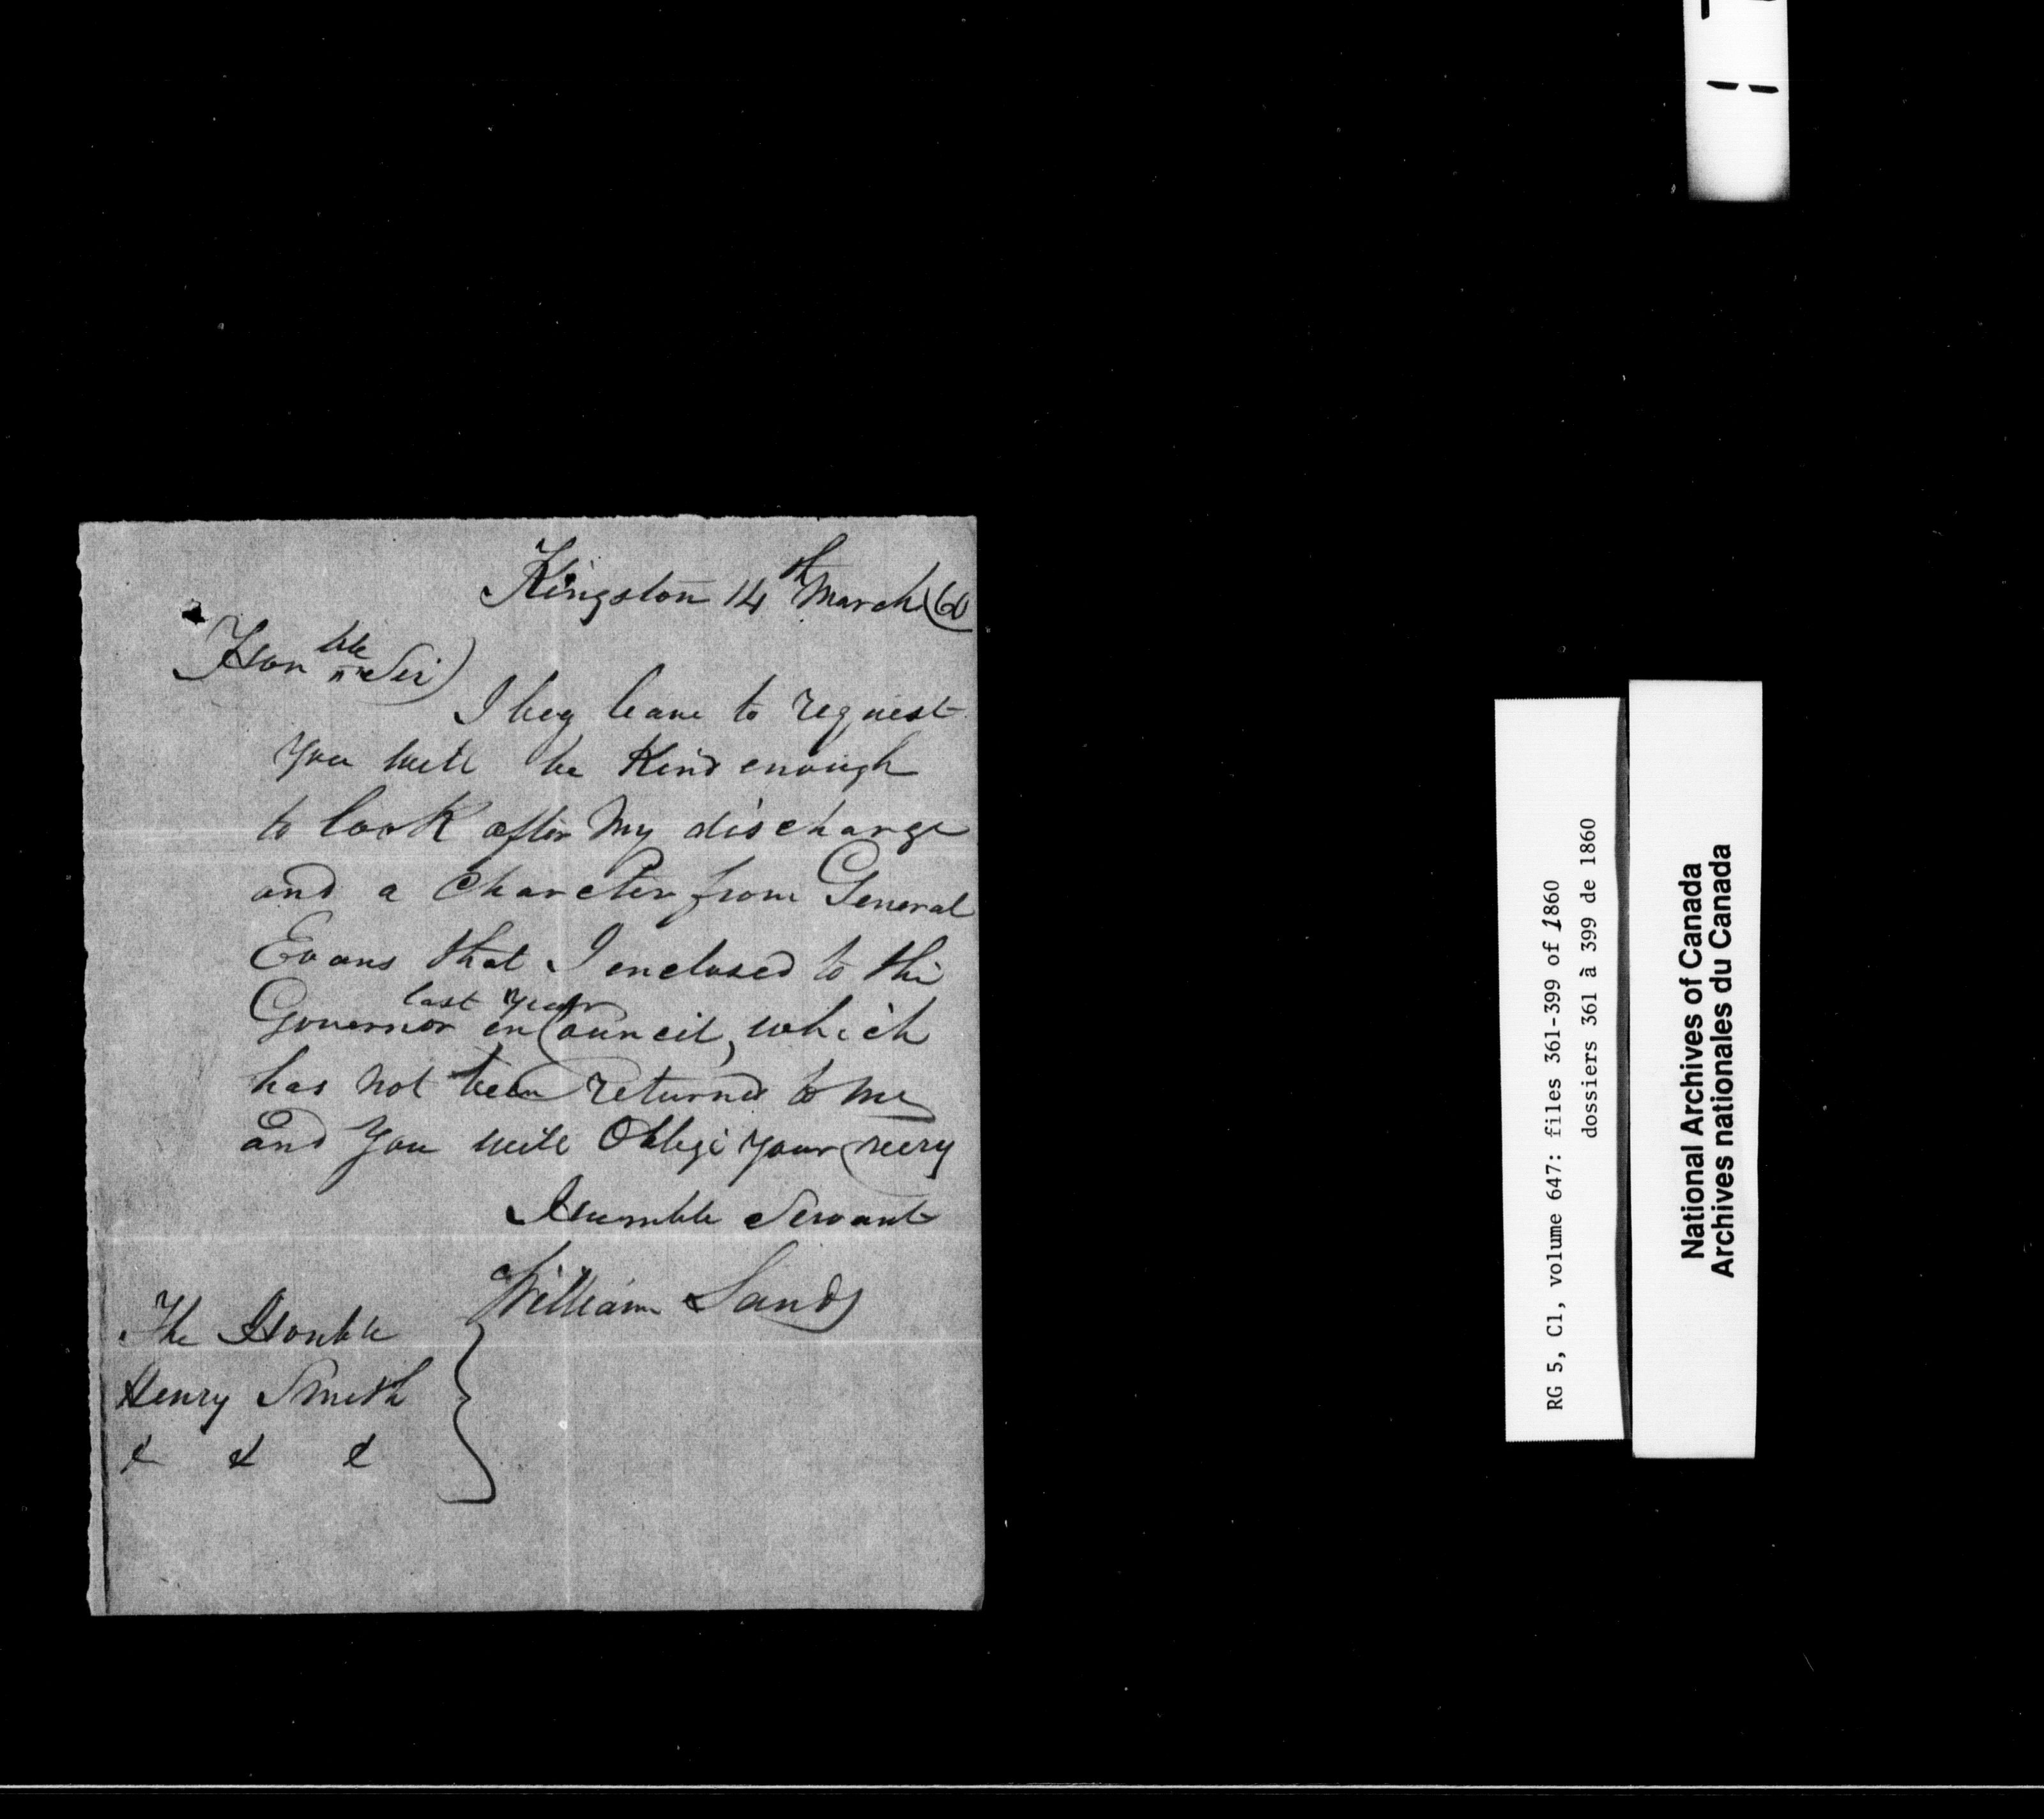 Kingston 14th March (60
Honble Sir)
I beg leave to request
you will be Kind enough
to look after My discharge
and a Charcter from General
Evans that I enclosed to the
last year
Governor in Council, which
has not been returned to me
and You will Oblige your very
Humble Servant
William Sands
The Honble
Henry Smith
& & &
RG 5, C1, volume 647: files 361-399 of 1860
dossiers 361 à 399 de 1860
National Archives of Canada
Archives nationales du Canada